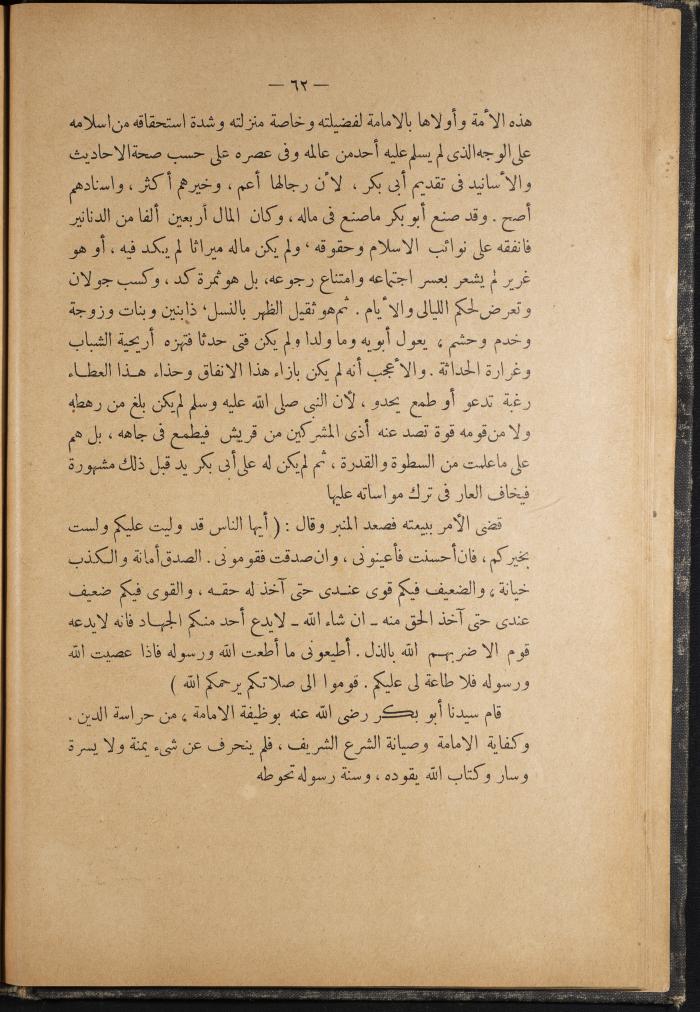 — ٦٢ —
هذه الأمة وأولاها بالامامة لفضيلته وخاصة منزلته وشدة استحقاقه من اسلامه
على الوجه الذى لم يسلم عليه أحد من عالمه وفى عصره على حسب صحة الاحاديث
والأسانيد فى تقديم أبى بكر ، لأن رجالها أعم ، وخيرهم أكثر ، واسنادهم
أصح . وقد صنع أبو بكر ماصنع فى ماله ، وكان المال أربعين ألفا من الدنانير
فانفقه على نوائب الاسلام وحقوقه ، ولم يكن ماله ميراثا لم يكد فيه ، أو هو
غرير لم يشعر بعسر اجتماعه وامتناع رجوعه، بل هو ثمرة كد ، وكسب جولان
وتعرض لحكم الليالى والأيام . ثم هو ثقيل الظهر بالنسل ، ذا بنين وبنات وزوجة
وخدم وحشم ، يعول أبويه وما ولدا ولم يكن فتى حدثا فتهزه أريحية الشباب
وغرارة الحداثة . والأعجب أنه لم يكن بازاء هذا الانفاق وحذاء هـذا العطـاء
رغبة تدعو أو طمع يحدو ، لأن النبى صلى الله عليه وسلم لم يكن بلغ من رهطه
ولا من قومه قوة تصد عنه أذى المشركين من قريش فيطمع فى جاهه ، بل هم
على ماعلمت من السطوة والقدرة ، ثم لم يكن له على أبى بكر يد قبل ذلك مشهورة
فيخاف العار فى ترك مواساته عليها
قضى الأمر ببيعته فصعد المنبر وقال : ( أيها الناس قد وليت عليكم ولست
بخيركم ، فان أحسنت فأعينونى ، وان صدقت فقومونى . الصدق أمانة والـكذب
خيانة ، والضعيف فيكم قوى عنـدى حتى آخذ له حقـه ، والقوى فيكم ضعيف
عندى حتى آخذ الحق منه ـ ان شاء الله ـ لايدع أحد منـكم الجهـاد فانه لايدعه
قوم الا ضربهـم الله بالذل . أطيعونى ما أطعت الله ورسوله فاذا عصيت الله
ورسوله فلا طاعة لى عليكم . قوموا الى صلاتـكم يرحمكم الله )
قام سيدنا أبو بـكـر رضى الله عنه بوظيفة الامامة ، من حراسة الدين .
وكفاية الامامة وصيانة الشرع الشريف ، فلم ينحرف عن شىء يمنة ولا يسرة
وسار وكتاب الله يقوده ، وسنة رسوله تحوطه